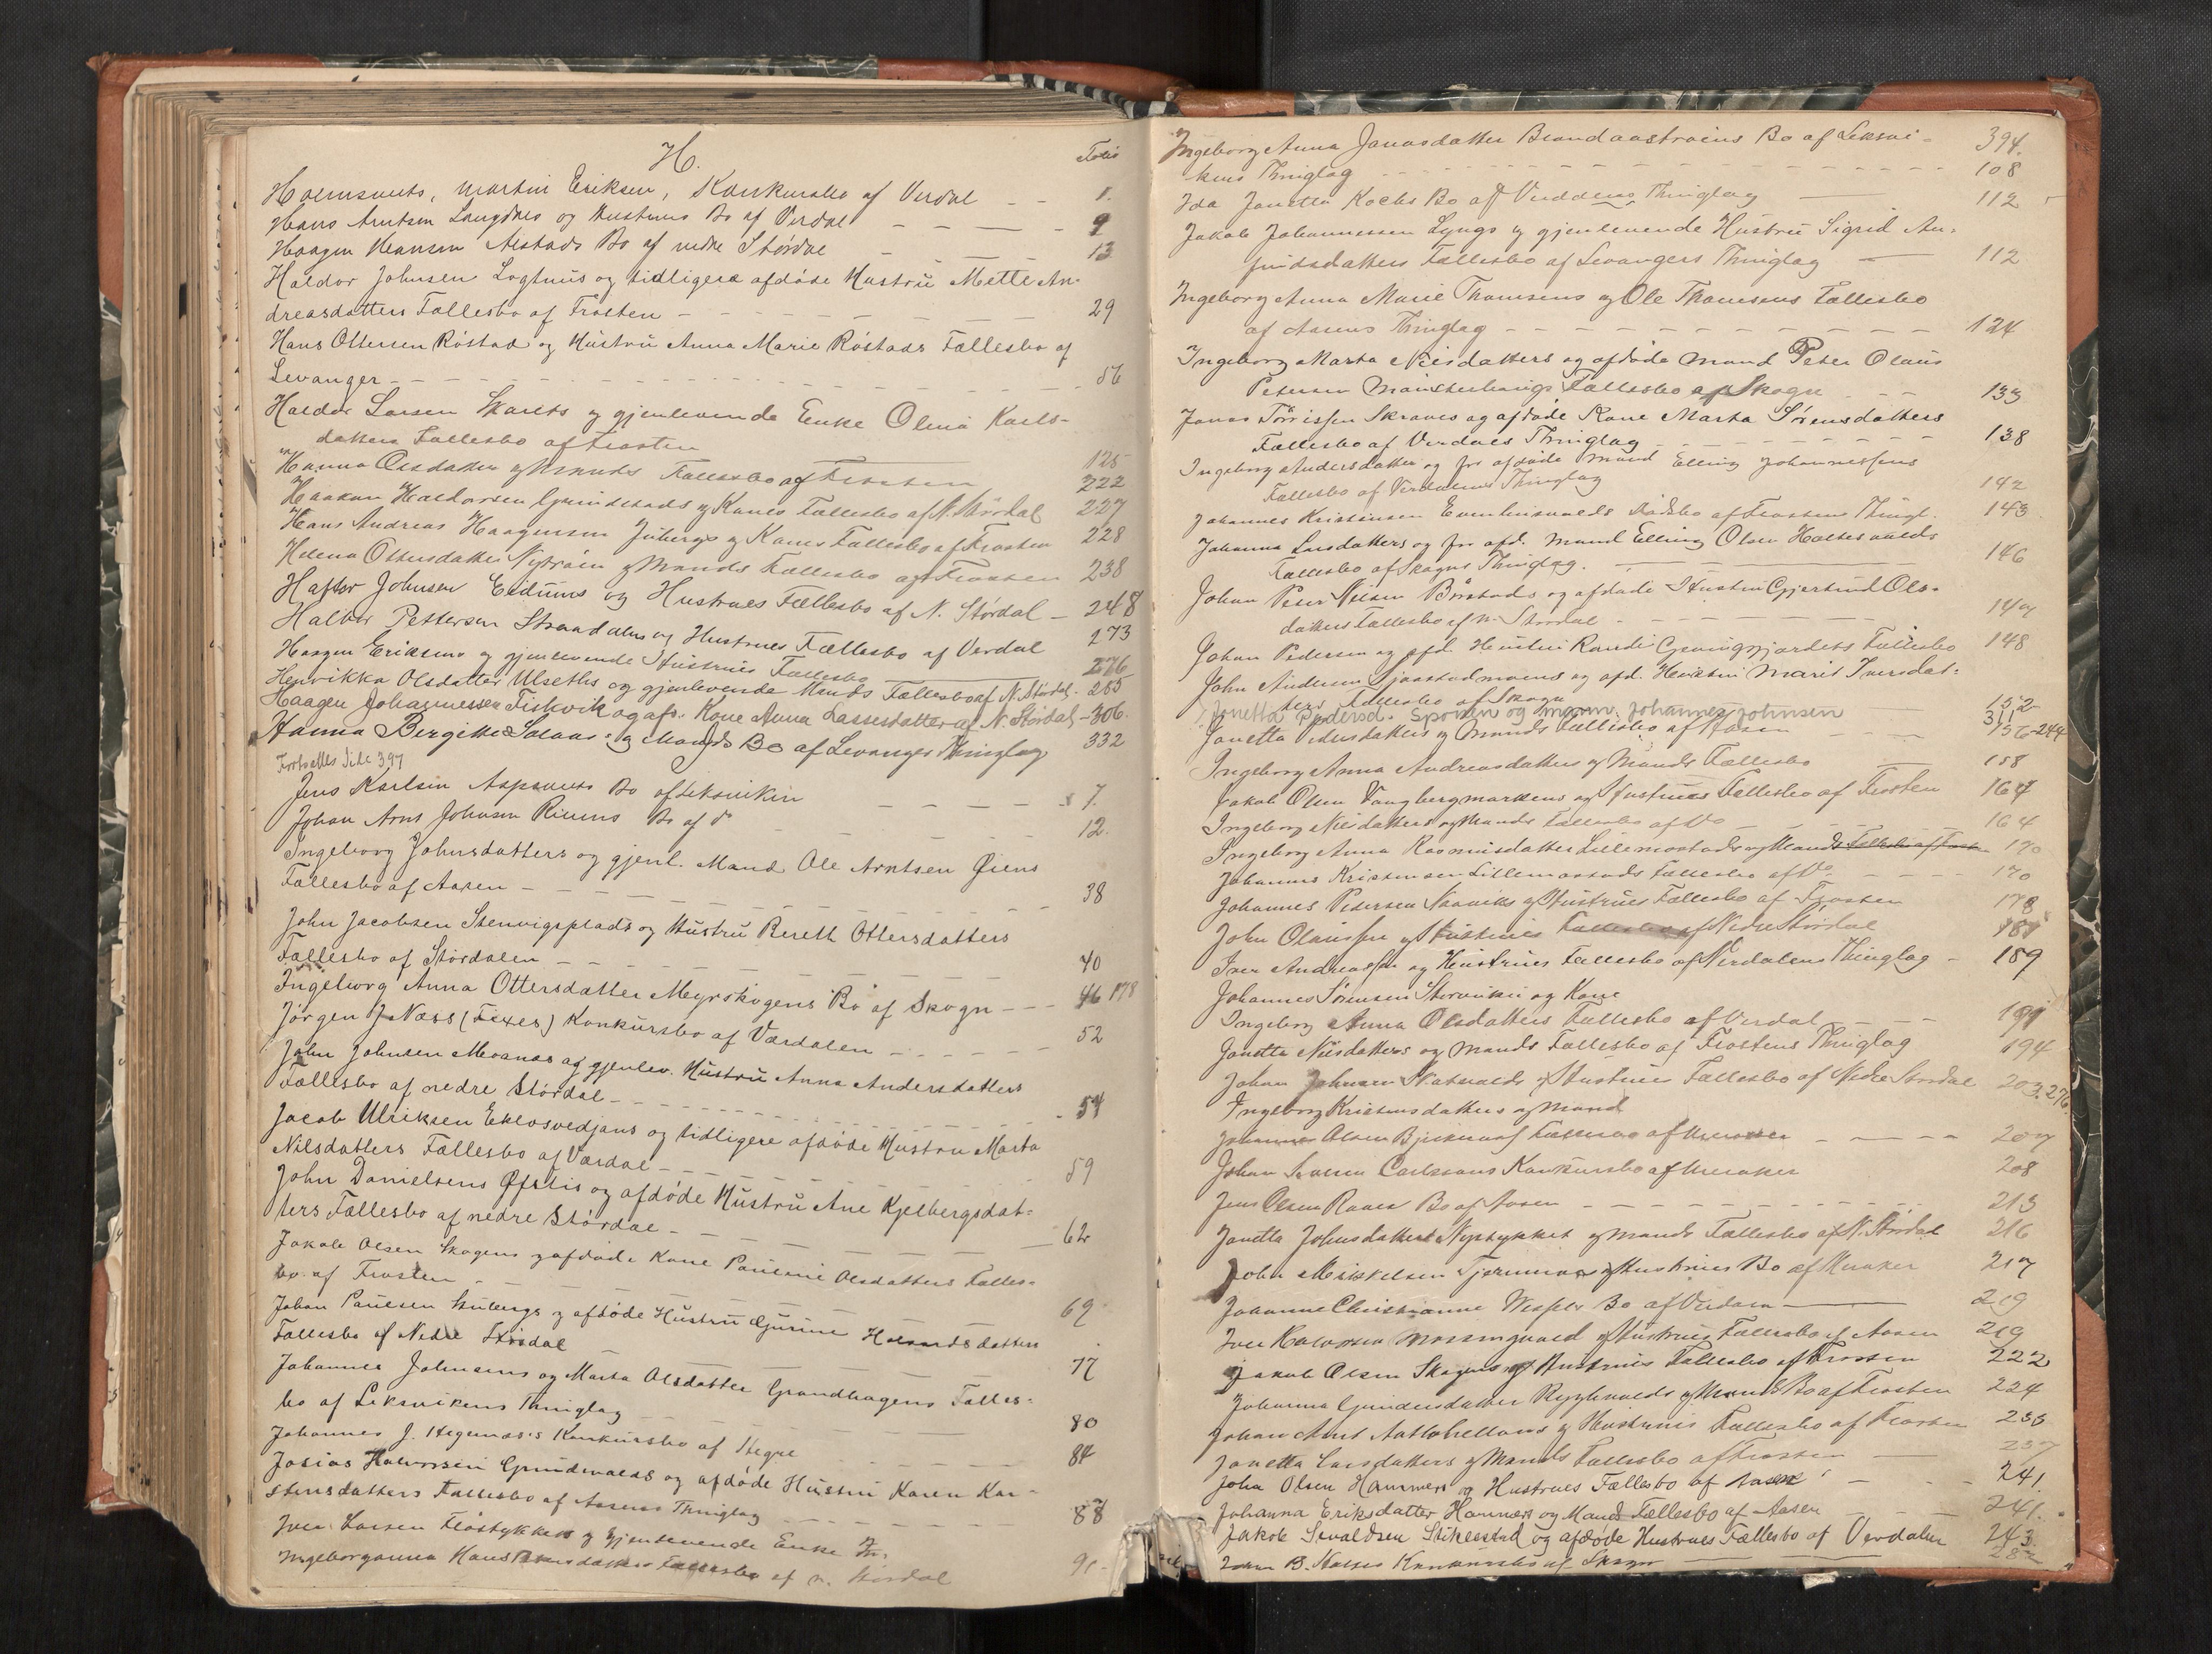 H.
Folio
Holmsunts, Martin Eriksen, Konkursbo af Verdal - - 1.
Hans Arntsen Langdals og Hustrues Bo af Verdal - - - - 9
Haagen Hansen Alstads Bo af nedre Stördal - - - 13
Haldor Johnsen Logtuns og tidligere afdöde Hustru Mette An-
dreasdatters Fællesbo af Frosten - - - - 29
Hans Ottersen Röstad og Hustru Anna Marie Röstads Fællesbo af
Levanger - - - - 56
Haldor Larsen og gjenlevende Enke Olina Karls-
datters Fællesbo af Frosten 125
Hanna Olsdatter og Mands Fællesbo af Frosten 222
Haakon Haldorsen Grindstads og Kones Fællesbo af N. Stördal 227
Hans Andreas Haagensen Jubergs og Kones Fællesbo af Frosten 228
Helena Ottersdatter Nytröen og Mands Fællesbo af Frosten 238
Haftor Johnsen Eidums og Hustrues Fællesbo af N. Stördal - 248
Halvor Pettersen Straadalen og Hustrues Fællesbo af Verdal 273
Haagen Eriksens og gjenlevende Hustrues Fællesbo 276
Henrikka Olsdatter Ulseths og gjenlevende Mands Fællesbo af N. Stördal. 285
Haagen Johannessen Fiskvik og afd. Kone Anna Lassesdatter af N. Stördal - 306.
Hanna Bergitte Solaas og Mands Bo af Levanger Thinglag 332
Fortsættes Side 397
Jens Karlsen Aspaunets Bo af Leksviken - - - - 7.
Johan Arnt Johnsen Riiuns Bo af do - - - - 12.
Ingeborg Johnsdatters og gjenl. Mand Ole Arntsen Øiens
Fællesbo af Aasen - - - - 38
John Jacobsen Stenvigsplads og Hustru Bereth Ottersdatters
Fællesbo af Stördalen - - - - 40
Ingeborg Anna Ottersdatter Myrskogens Bo af Skogn - - - 46 178
Jörgen J. Næss (Fixes) Konkursbo af Værdalen - - - - 52
John Johnsen Moanas og gjenlev. Hustru Anna Andersdatters
Fællesbo af nedre Stördal - - - - 54
Jacob Ulriksen Eklosvedjans og tidligere afdöde Hustru Marta
Nilsdatters Fællesbo af Værdal - - - - 59
John Danielsens Øfstis og afdöde Hustru Ane Kjelbergsdat-
ters Fællesbo af nedre Stördal - - - - 62
Jakob Olsen Skogens og afdöde Kone Pauline Olsdatters Fælles-
bo af Frosten - - - - 69
Johan Paulsen Kulbergs og afdöde Hustru Gurine Halvardsdatters
Fællesbo af Nedre Stördal 77
Johannes Johnsens og Marta Olsdatter Grandhagens Fælles-
bo af Leksvikens Thinglag 80
Johannes J. Hegenæs's Konkursbo af Hegre - - - - 84
Josias Halvorsen Grundvalds og afdöde Hustru Karen Kar-
stensdatters Fællesbo af Aasens Thinglag - - - - 88
Iver Larsen Flöstykket og gjenlevende Enke
Ingeborganna Hans Fællesbo af n. Stördal 91
Ingeborg Anna Jonasdatter Brandaastrøens Bo af Leksvi- 394.
kens Thinglag - - - - 108
Ida Janetta Kochs Bo af Verdalens Thinglag 112
Jakob Johannessen Lyngs og gjenlevende Hustru Sigrid An-
findsdatters Fællesbo af Levangers Thinglag - 112
Ingeborg Anna Marie Thomsens og Ole Thomsens Fællesbo
af Aasens Thinglag - - - - 124
Ingeborg Marta Nilsdatters og afdöde Mand Peter Olaus
Petersen Fællesbo af Skogn - - 133
Jonas Törrissen Skraves og afdöde Kone Marta Sörensdatters
Fællesbo af Verdales Thinglag - - - - 138
Ingeborg Andersdatter og för afdöde Mand Elling Johannessens
Fællesbo af Verdalens Thinglag 142
Johannes Kristensen Dödsbo af Frostens Thingl. 143
Johanna Larsdatters og för afd. Mand Elling Olsen
Fællesbo af Skogns Thinglag. 146
Johan Peter Nilsen Börstads og afdöde Hustru Gjertrud Ols-
datters Fællesbo af n. Stördal - - - 147
Johan Pedersen og afd. Hustru Randi Fællesbo 148
John Andersen og afd. Hustru Marit Iversdat-
ters Fællesbo af Skogn 152
Jonetta Pedersd. Sponen og mann, Johannes Johnsen 311
Janetta Pedersdatters og Mands Fællesbo af Aasen 156-244
Ingeborg Anna Andreasdatters og Mands Fællesbo 158
Jakob Olsen Vangbergmarkens og Hustrues Fællesbo af Frosten 164
Ingeborg Nilsdatters og Mands Fællesbo af Do 164
Ingeborg Anna Rasmusdatter Lillemostads og Mands Fællesbo af Frosten 170
Johannes Kristensen Lillemostads Fællesbo af Do - - - - 170
Johannes Pedersen og Hustrues Fællesbo af Frosten 178
John Olaussen og Hustrues Fællesbo af Nedre Stördal 181
Iver Andreassen og Hustrues Fællesbo af Verdalens Thinglag - 189
Johannes Sörensen og Kone
Ingeborg Anna Olsdatters Fællesbo af Verdal - - 191
Janetta Nilsdatters og Mands Fællesbo af Frostens Thinglag 194
Johan Johnsen Skatvalds og Hustrues Fællesbo af Nedre Stördal 203.276.
Ingeborg Kristensdatters og Mand
Johannes Olsen Fællesbo af Meraker - - - - 207
Johan Carlssons Konkursbo af Meraker 208
Jens Olsen Raaes Bo af Aasen - - - - 213
Janetta Johnsdatters Nystykket og Mands Fællesbo af N. Stördal 216
John Mikkelsen og Hustrues Bo af Meraker 217
Johanne Christianne Bo af Verdalen 219
Iver Halvorsen Mossingvald og Hustrues Fællesbo af Aasen 219
Jakob Olsen Skogens og Hustrues Fællesbo af Frosten 222
Johanna Gundersdatter og Mands Bo af Frosten 224
Johan Arnt og Hustrues Fællesbo af Frosten 233
Janetta Larsdatters og Mands Fællesbo af Frosten 237
John Olsen Hammers og Hustrues Fællesbo af Aasen - - - 241.
Johanna Eriksdatter Hammers og Mands Fællesbo af Aasen 241.
Jakob Sivaldsen Stiklestad og afdøde Hustrues Fællesbo af Verdalen 243.
Johan B. Konkursbo af Skogn 282